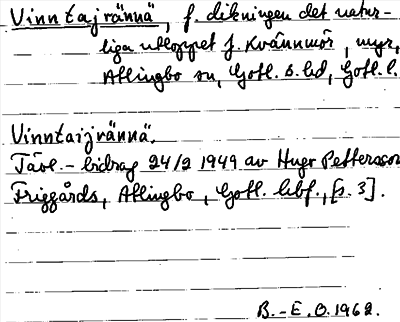 Vinntajrännä, f. dikningen det natur-
liga utloppet f. Kvännmör, myr,
Allingbo sn, Gotl. s. hd, Gotl. l.
Vinntaijrännä.
Tävl.-bidrag 24/2 1949 av Hugo Pettersson
Friggårds, Allingbo, Gotl. hbf., [s. 3].
B.-E. O. 1962.